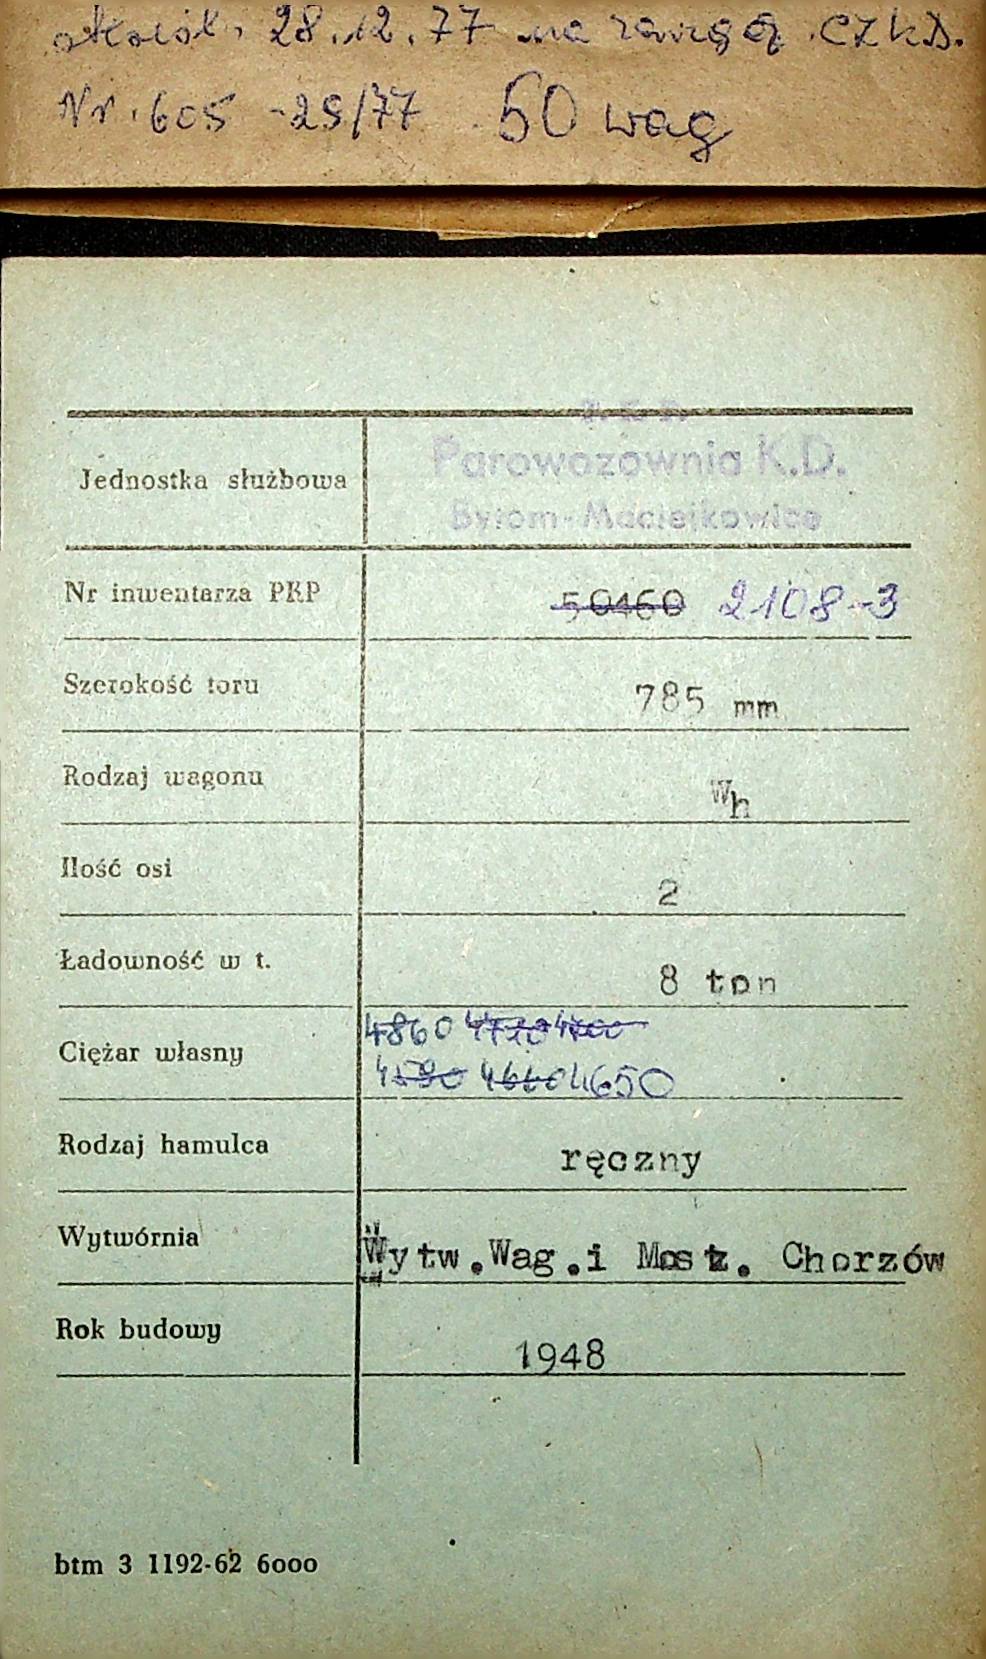 28.12.77 na
Nr. 605 -29/77 50 wag
P. K. P.
Parowozownia K.D.
Bytom-Maciejkowice
Jednostka służbowa
Nr inwentarza PKP 50460 2108-3
Szerokość toru 785 mm
Rodzaj wagonu Wh
Ilość osi 2
Ładowność w t. 8 ton
4860 4720 4700
Ciężar własny
4590 4660 4650
Rodzaj hamulca ręczny
Wytwórnia Wytw.Wag.i Most. Chorzów
Rok budowy 1948
btm 3 1192-62 6000